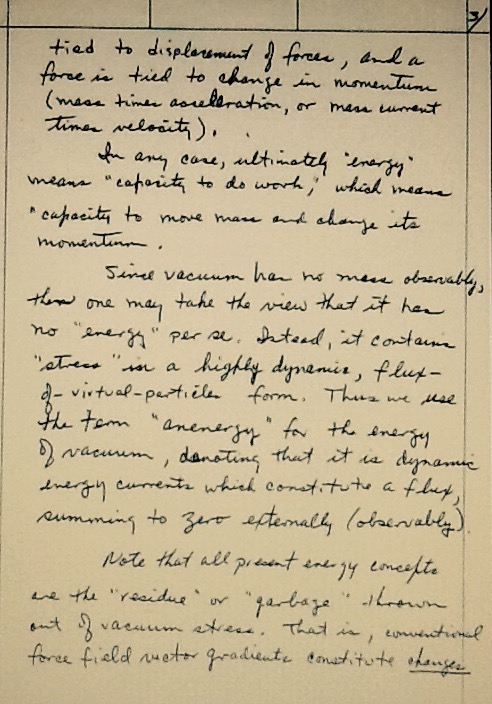 3/
tied to displacement of forces, and a
force is tied to change in momentum
(mass times acceleration, or mass current
times velocity).
In any case, ultimately "energy"
means "capacity to do work," which means
"capacity to move mass and change its
momentum.
Since vacuum has no mass observably,
then one may take the view that it has
no "energy" per se. Instead, it contains
"stress" in a highly dynamic, flux-
of-virtual-particles form. Thus we use
the term "anenergy" for the energy
of vacuum, denoting that it is dynamic
energy currents which constitute a flux,
summing to zero externally (observably).
Note that all present energy concepts
are the "residue" or "garbage" thrown
out of vacuum stress. That is, conventional
force field vector gradients constitute changes